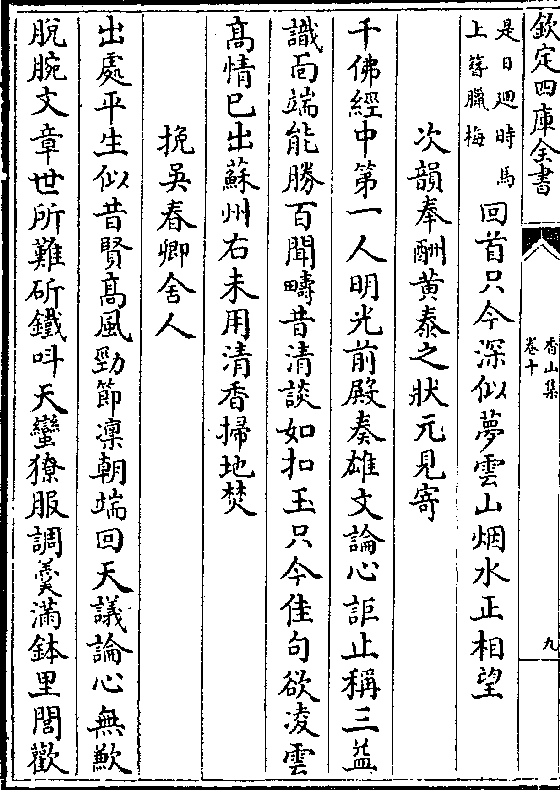 欽定四庫全書
香山集
卷十
九
是日廻時馬
上簪臘梅
回首只今深似夢雲山烟水正相望
次韻奉酬黄泰之狀元見寄
千佛經中第一人明光前殿奏雄文論心詎止稱三益
識面端能勝百聞疇昔清談如扣玉只今佳句欲凌雲
髙情已出蘇州右未用清香掃地焚
挽吳春卿舍人
出處平生似昔賢髙風勁節凛朝端回天議論心無歉
脫腕文章世所難斫鐵呌天蠻獠服調羮滿鉢里閭歡